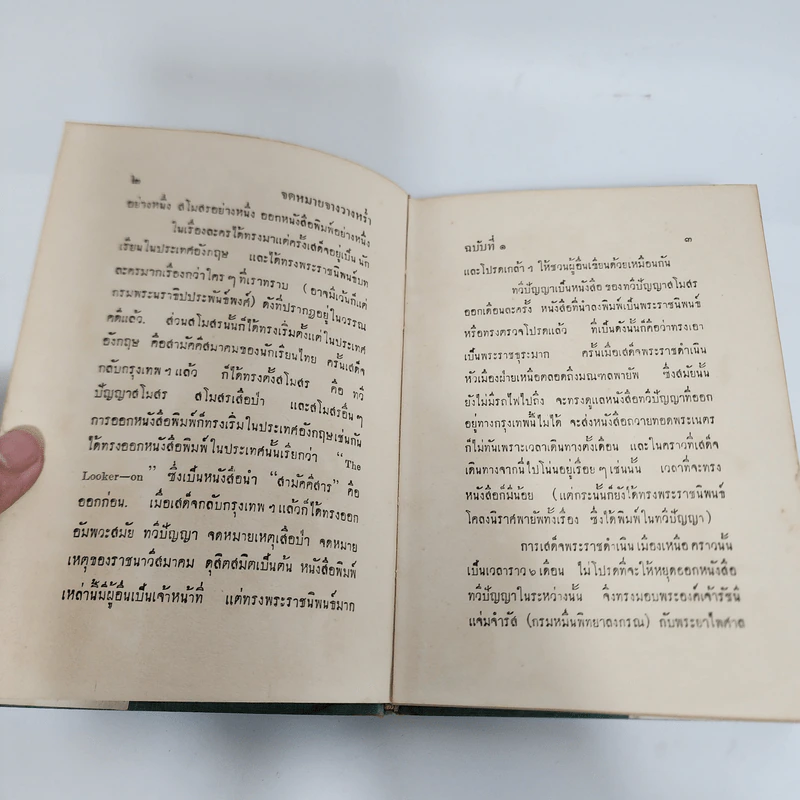 ๒
จดหมายจางวางหร่ำ
อย่างหนึ่ง สโมสรอย่างหนึ่ง ออกหนังสือพิมพ์อย่างหนึ่ง
ในเรื่องละครได้ทรงมาแต่ครั้งเสด็จอยู่เป็นนัก
เรียนในประเทศอังกฤษ และได้ทรงพระราชนิพนธ์บท
ละครมากเรื่องกว่าใคร ๆ ที่เราทราบ (อาจมีเว้นก็แต่
กรมพระนราธิปประพันธ์พงศ์) ดังที่ปรากฏอยู่ในวรรณ
คดีแล้ว. ส่วนสโมสรนั้นก็ได้ทรงเริ่มตั้งแต่ในประเทศ
อังกฤษ คือสามัคคีสมาคมของนักเรียนไทย ครั้นเสด็จ
กลับกรุงเทพ ฯ แล้ว ก็ได้ทรงตั้งสโมสร คือ ทวี
ปัญญาสโมสร สโมสรเสือป่า และสโมสรอื่น ๆ
การออกหนังสือพิมพ์ก็ทรงเริ่มในประเทศอังกฤษเช่นกัน
ได้ทรงออกหนังสือพิมพ์ในประเทศนั้นเรียกว่า “The
Looker—on” ซึ่งเป็นหนังสือนำ “สามัคคีสาร” คือ
ออกก่อน. เมื่อเสด็จกลับกรุงเทพ ฯ แล้วก็ได้ทรงออก
อัมพวะสมัย ทวีปัญญา จดหมายเหตุเสือป่า จดหมาย
เหตุของราชนาวีสมาคม ดุสิตสมิตเป็นต้น หนังสือพิมพ์
เหล่านี้มีผู้อื่นเป็นเจ้าหน้าที่ แต่ทรงพระราชนิพนธ์มาก
ฉบับที่ ๑
๓
และโปรดเกล้า ฯ ให้ชวนผู้อื่นเขียนด้วยเหมือนกัน
ทวีปัญญาเป็นหนังสือ ของทวีปัญญาสโมสร
ออกเดือนละครั้ง หนังสือที่นำลงพิมพ์เป็นพระราชนิพนธ์
หรือทรงตรวจโปรดแล้ว ที่เป็นดังนั้นก็คือว่าทรงเอา
เป็นพระราชธุระมาก ครั้นเมื่อเสด็จพระราชดำเนิน
หัวเมืองฝ่ายเหนือตลอดถึงมณฑลพายัพ ซึ่งสมัยนั้น
ยังไม่มีรถไฟไปถึง จะทรงดูแลหนังสือทวีปัญญาที่ออก
อยู่ทางกรุงเทพนี้ไม่ได้ จะส่งหนังสือถวายทอดพระเนตร
ก็ไม่ทันเพราะเวลาเดินทางตั้งเดือน และในคราวที่เสด็จ
เดินทางจากนี่ไปโน่นอยู่เรื่อย ๆ เช่นนั้น เวลาที่จะทรง
หนังสือก็มีน้อย (แต่กระนั้นก็ยังได้ทรงพระราชนิพนธ์
โคลงนิราศพายัพทั้งเรื่อง ซึ่งได้พิมพ์ในทวีปัญญา)
การเสด็จพระราชดำเนินเมืองเหนือคราวนั้น
เป็นเวลาราว ๖ เดือน ไม่โปรดที่จะให้หยุดออกหนังสือ
ทวีปัญญาในระหว่างนั้น จึงทรงมอบพระองค์เจ้ารัชนี
แจ่มจำรัส (กรมหมื่นพิทยาลงกรณ) กับพระยาไพศาล